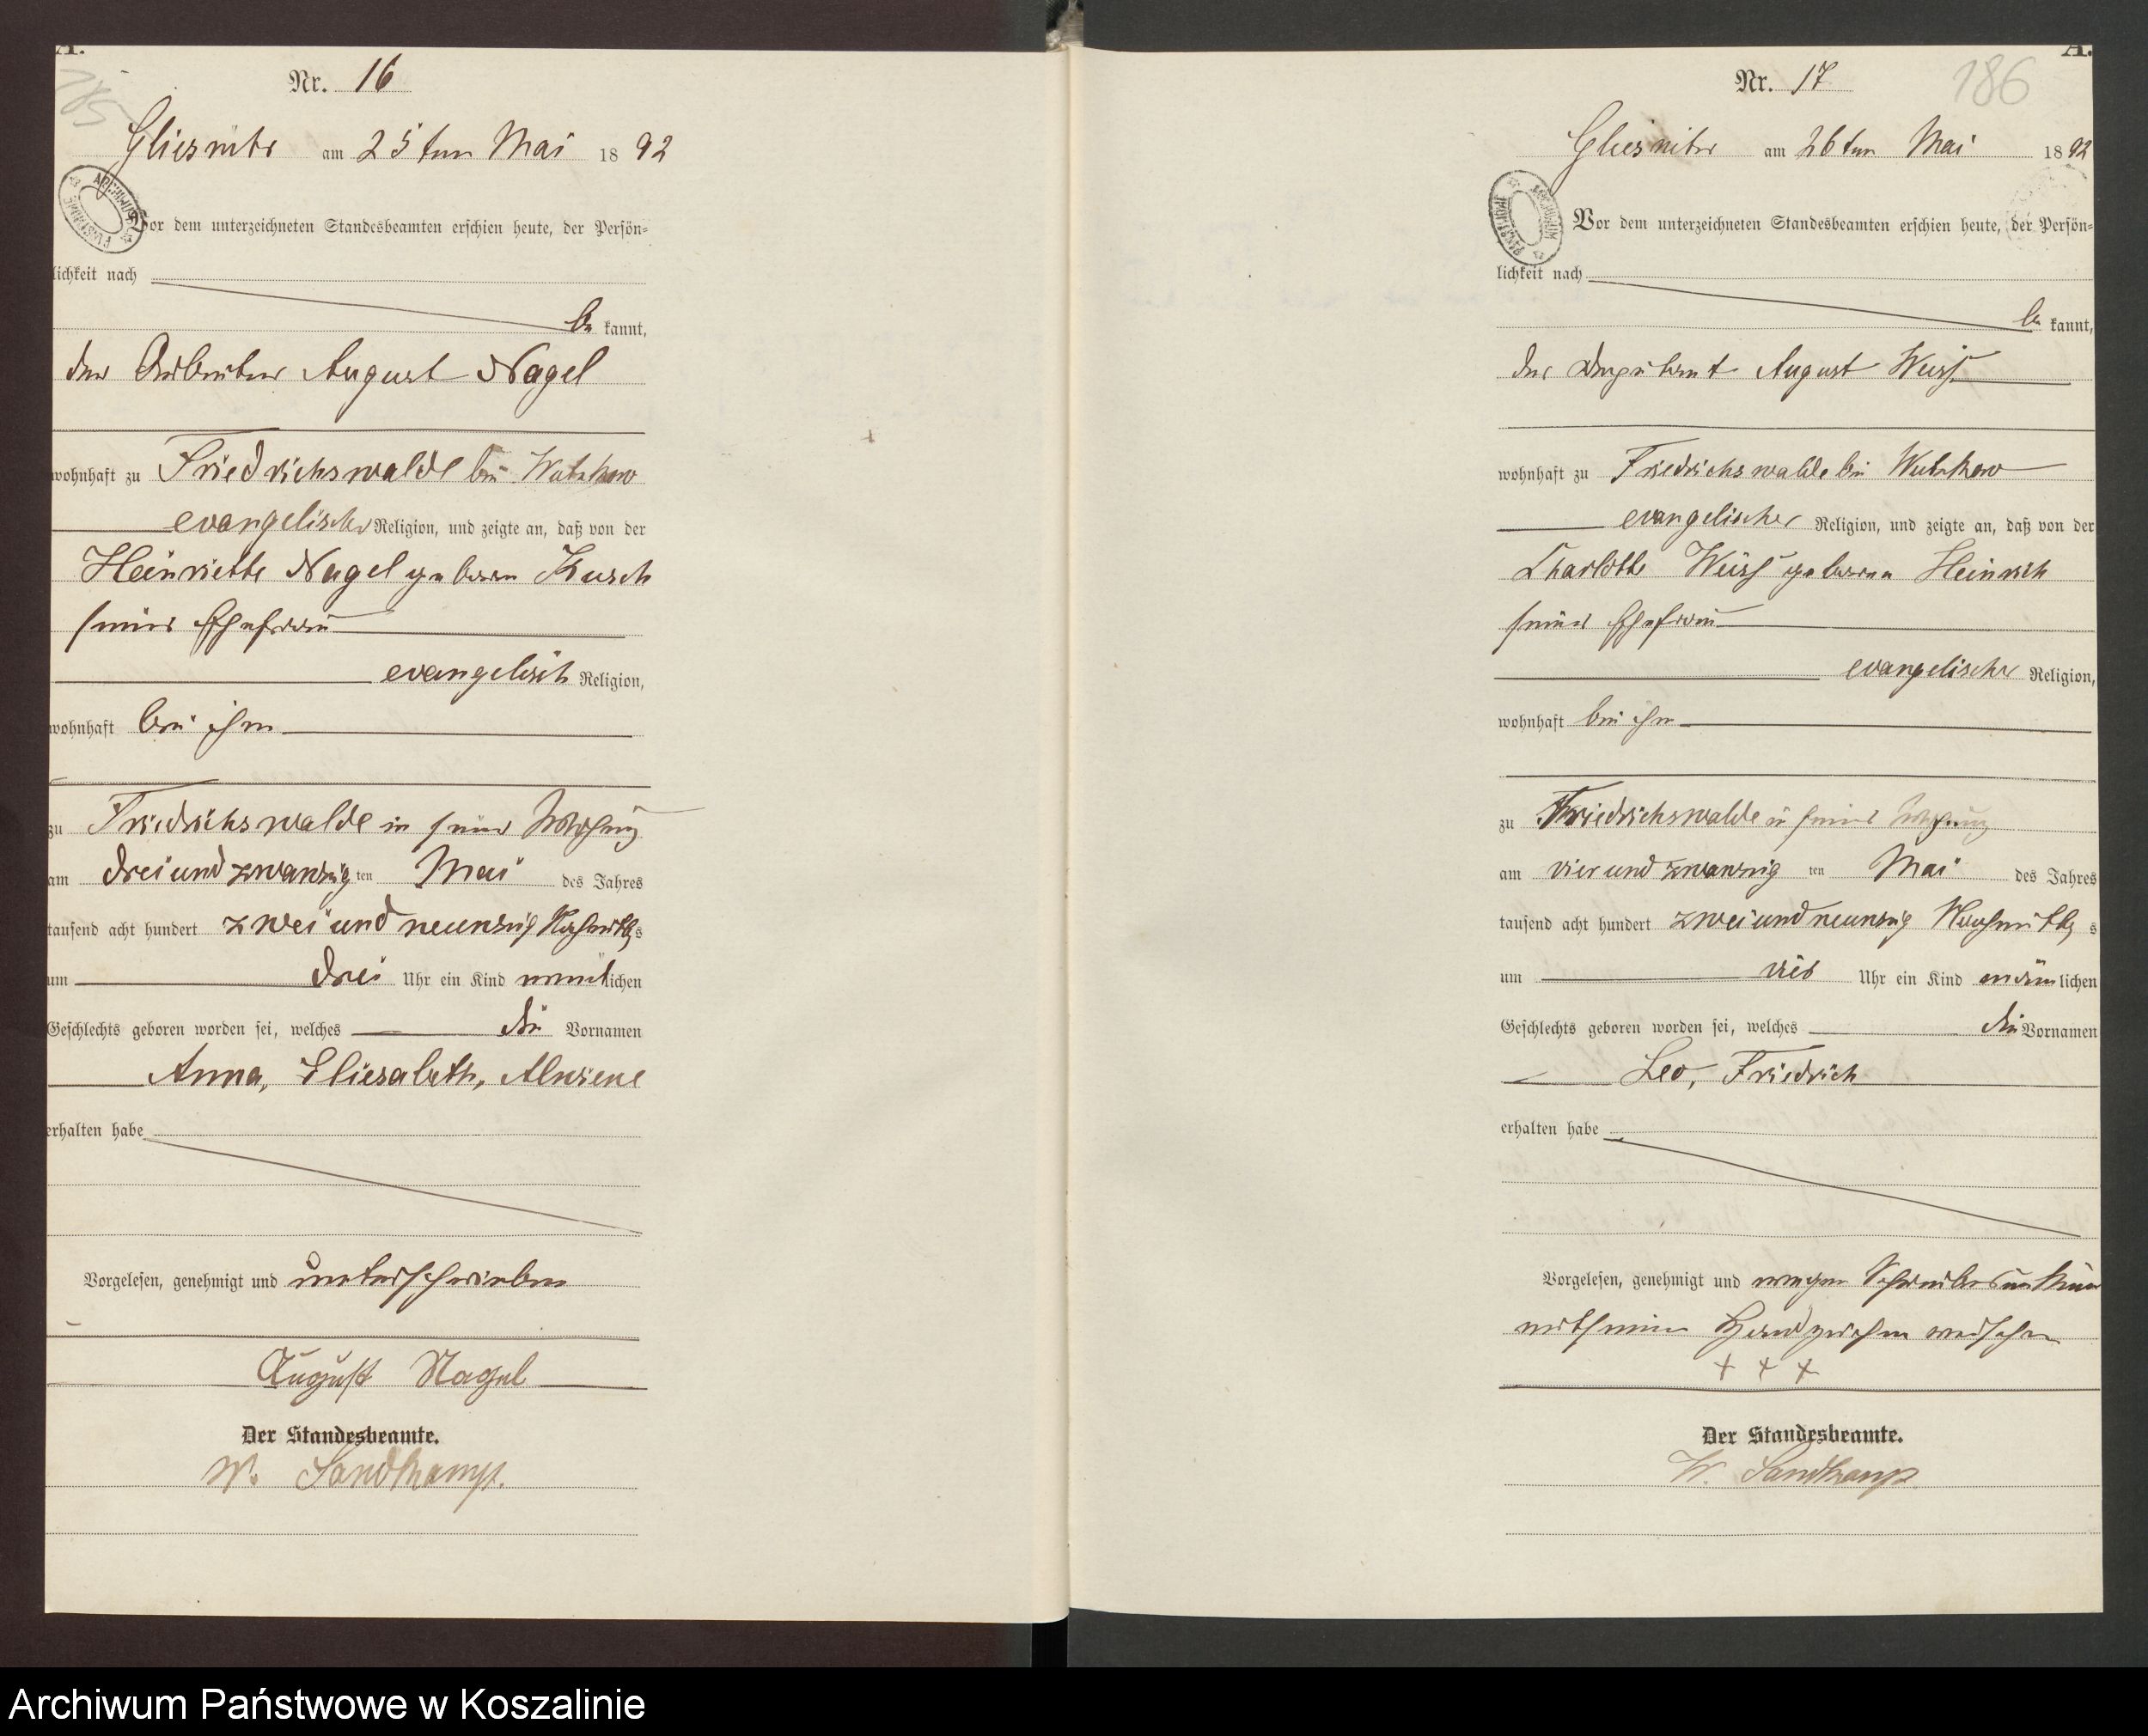 A.
185
Nr. 16
Gliesnitz am 25ten Mai 1892
ARCHIWUM PAŃSTWOWE
Vor dem unterzeichneten Standesbeamten erschien heute, der Persön=
lichkeit nach
be kannt,
der Arbeiter August Nagel
wohnhaft zu Friedrichswalde bei Wutzkow
evangelischer Religion, und zeigte an, daß von der
Heinriette Nagel geboren Kusch
seiner Ehefrau
evangelisch Religion,
wohnhaft bei ihm
zu Friedrichswalde in seiner Wohnung
am dreiundzwanzig ten Mai des Jahres
tausend acht hundert zwei und neunzig Nachmittags
um drei Uhr ein Kind weiblichen
Geschlechts geboren worden sei, welches die Vornamen
Anna, Eliesabeth,
erhalten habe
Vorgelesen, genehmigt und unterschrieben
August Nagel
Der Standesbeamte.
W. Sandkamp.
A.
186
Nr. 17
Gliesnitz am 26ten Mai 1892
ARCHIWUM PAŃSTWOWE
Vor dem unterzeichneten Standesbeamten erschien heute, der Persön=
lichkeit nach
be kannt,
der Deputant August Weiß
wohnhaft zu Friedrichswalde bei Wutzkow
evangelischer Religion, und zeigte an, daß von der
Charlotte Weiß geborene Heinrich
seiner Ehefrau
evangelischer Religion,
wohnhaft bei ihm
zu Friedrichswalde in seiner Wohnung
am vier und zwanzig ten Mai des Jahres
tausend acht hundert zwei und neunzig Nachmittags
um vier Uhr ein Kind männlichen
Geschlechts geboren worden sei, welches die Vornamen
Leo, Friedrich
erhalten habe
Vorgelesen, genehmigt und wegen Schreibensunkunde
mit seinem Handzeichen versehen
+ + +
Der Standesbeamte.
W. Sandkamp
Archiwum Państwowe w Koszalinie